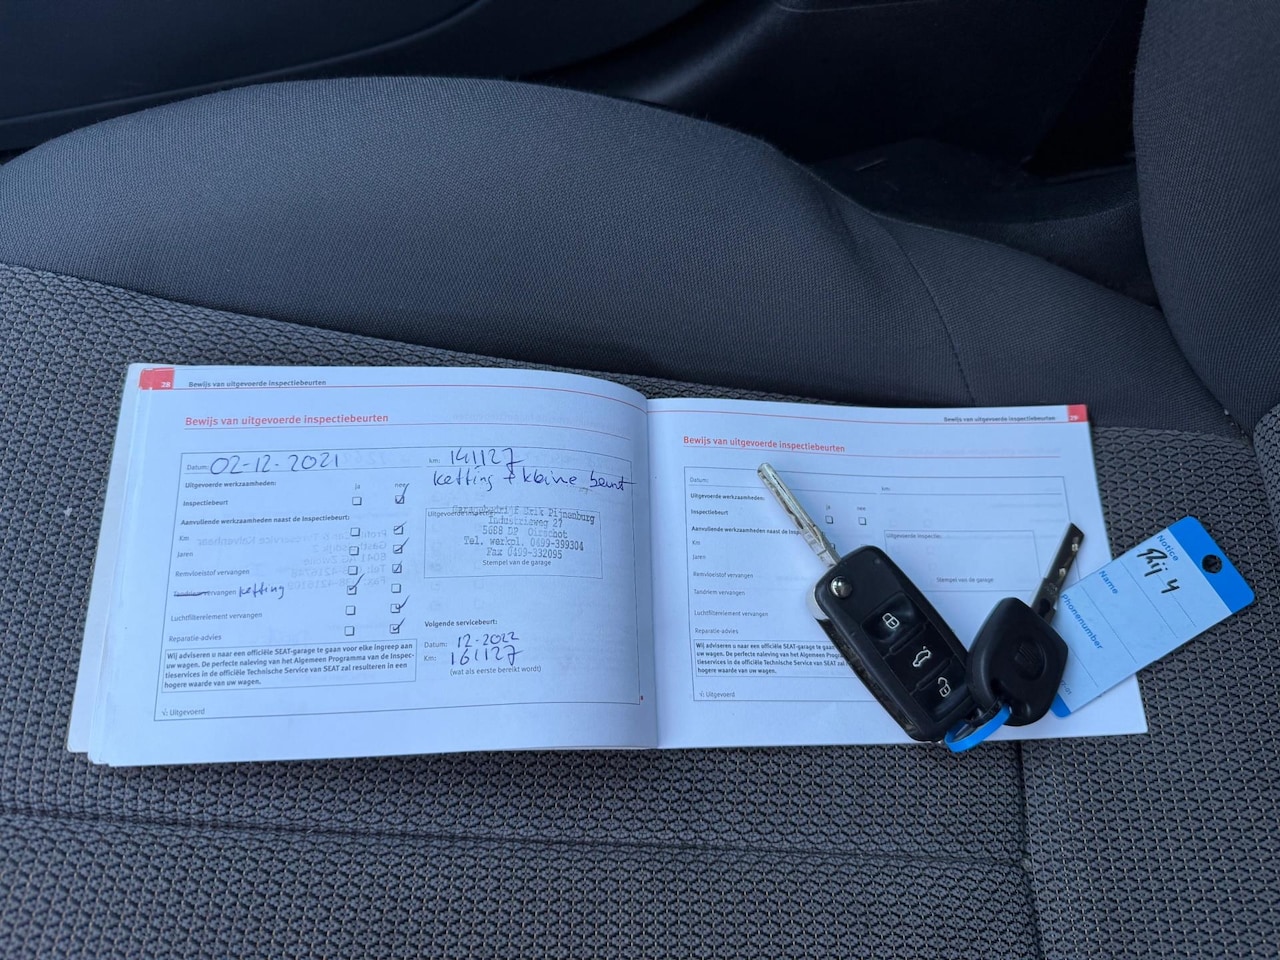 28 Bewijs van uitgevoerde inspectiebeurten
Bewijs van uitgevoerde inspectiebeurten
Datum: 02-12-2021
km: 141127
ketting + kleine beurt
Uitgevoerde werkzaamheden:
ja nee
Inspectiebeurt
Aanvullende werkzaamheden naast de Inspectiebeurt:
Km
Jaren
Remvloeistof vervangen
Tandriem vervangen ketting
Luchtfilterelement vervangen
Reparatie-advies
Wij adviseren u naar een officiële SEAT-garage te gaan voor elke ingreep aan
uw wagen. De perfecte naleving van het Algemeen Programma van de Inspec-
tieservices in de officiële Technische Service van SEAT zal resulteren in een
hogere waarde van uw wagen.
√: Uitgevoerd
Garagebedrijf Erik Pijnenburg
Industrieweg 27
5688 DP Oirschot
Tel. werkpl. 0499-399304
Fax 0499-332095
Stempel van de garage
Volgende servicebeurt:
Datum: 12-2022
Km: 161127
(wat als eerste bereikt wordt)
Bewijs van uitgevoerde inspectiebeurten 29
Bewijs van uitgevoerde inspectiebeurten
Datum:
km:
Uitgevoerde werkzaamheden:
ja nee
Inspectiebeurt
Aanvullende werkzaamheden naast
Km
Jaren
Remvloeistof vervangen
Tandriem vervangen
Luchtfilterelement vervangen
Reparatie-advies
Wij adviseren u naar een officiële SEAT
uw wagen. De perfecte naleving van het
tieservices in de officiële Technische Se
hogere waarde van uw wagen.
√: Uitgevoerd
Uitgevoerde inspectie:
Stempel van de garage
Notice
Name
Phonenumber